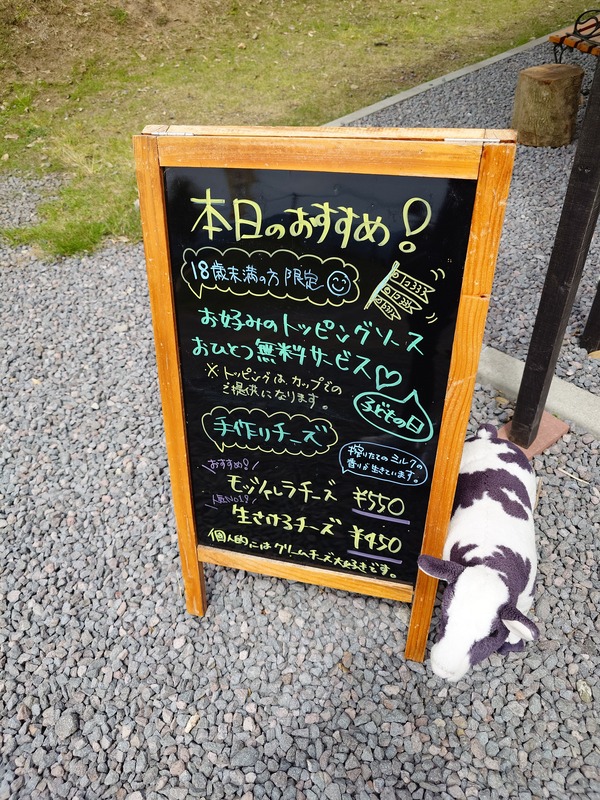 本日のおすすめ!
18歳未満の方限定
お好みのトッピングソース
おひとつ無料サービス♡
※トッピングはカップでの
ご提供になります。
子どもの日
手作りチーズ
搾りたてのミルクの
香りが生きています。
おすすめ!
モッツァレラチーズ ¥550
人気No.1!
生さけるチーズ ¥450
個人的にはクリームチーズ大好きです。